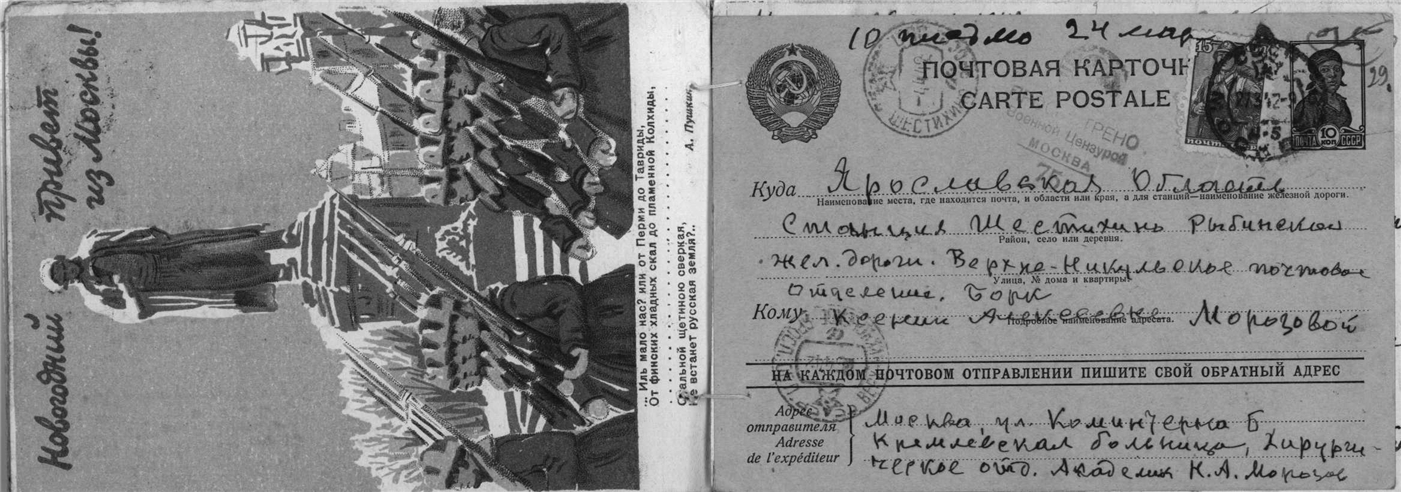 Новогодний Привет
из Москвы!
...Иль мало нас? или от Перми до Тавриды,
От финских хладных скал до пламенной Колхиды,
Стальной щетиною сверкая,
Не встанет русская земля?..
А. Пушкин
10 письмо 24 мар
29.
ПОЧТОВАЯ КАРТОЧК
CARTE POSTALE
15
27 3 42
ПОЧТА 10 КОП СССР
ШЕСТИХИНО
РЕНО
Военной Цензурой
МОСКВА
Куда Ярославская Область
Наименование места, где находится почта, и области или края, а для станций—наименование железной дороги.
Станция Шестихино Рыбинской
Район, село или деревня.
жел. дороги. Верхне-Никульское почтовое
Улица, № дома и квартиры
отделение. Борк
Кому Ксении Алексеевне Морозовой
Подробное наименование адресата.
НА КАЖДОМ ПОЧТОВОМ ОТПРАВЛЕНИИ ПИШИТЕ СВОЙ ОБРАТНЫЙ АДРЕС
Адрес отправителя
Adresse de l'expéditeur
Москва, ул. Коминтерна Б
Кремлевская больница, Хирурги-
ческое отд. Академик Н.А. Морозов